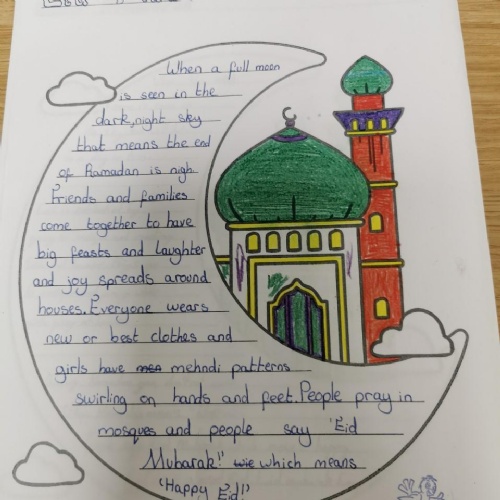 When a full moon
is seen in the
dark, night sky
that means the end
of Ramadan is nigh
Friends and families
come together to have
big feasts and laughter
and joy spreads around
houses. Everyone wears
new or best clothes and
girls have mehndi patterns
swirling on hands and feet. People pray in
mosques and people say 'Eid
Mubarak!' which means
"Happy Eid!"